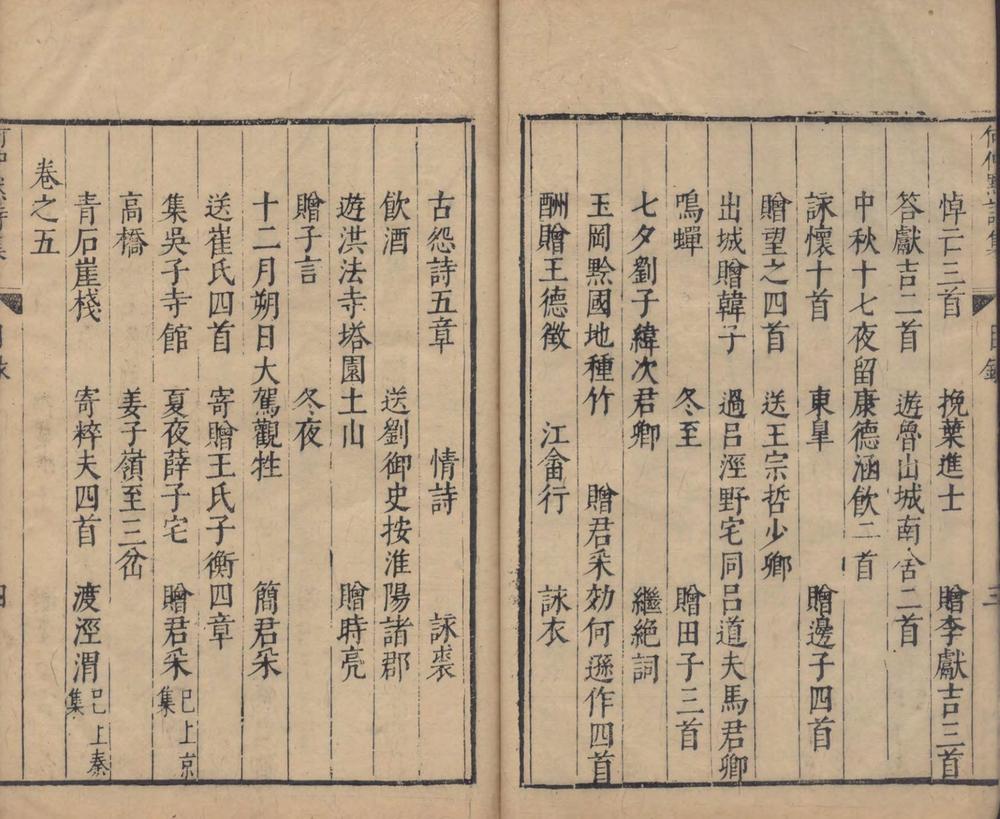 何仲默詩集 目錄 三
悼亡三首 挽葉進士 贈李獻吉三首
答獻吉二首 遊魯山城南舍二首
中秋十七夜留康德涵飲二首
詠懷十首 東臯 贈邊子四首
贈望之四首 送王宗哲少卿
出城贈韓子 過呂涇野宅同呂道夫馬君卿
鳴蟬 冬至 贈田子三首
七夕劉子緯次君卿 繼絕詞
玉岡黔國地種竹 贈君采効何遜作四首
酬贈王德徵 江畬行 詠衣
古怨詩五章 情詩 詠裘
飲酒 送劉御史按淮陽諸郡
遊洪法寺塔園土山 贈時亮
贈子言 冬夜
十二月朔日大駕觀牲 簡君采
送崔氏四首 寄贈王氏子衡四章
集吳子寺館 夏夜薛子宅 贈君采 巳上京集
高橋 姜子嶺至三岔
青石崖棧 寄粹夫四首 渡涇渭 巳上秦集
卷之五